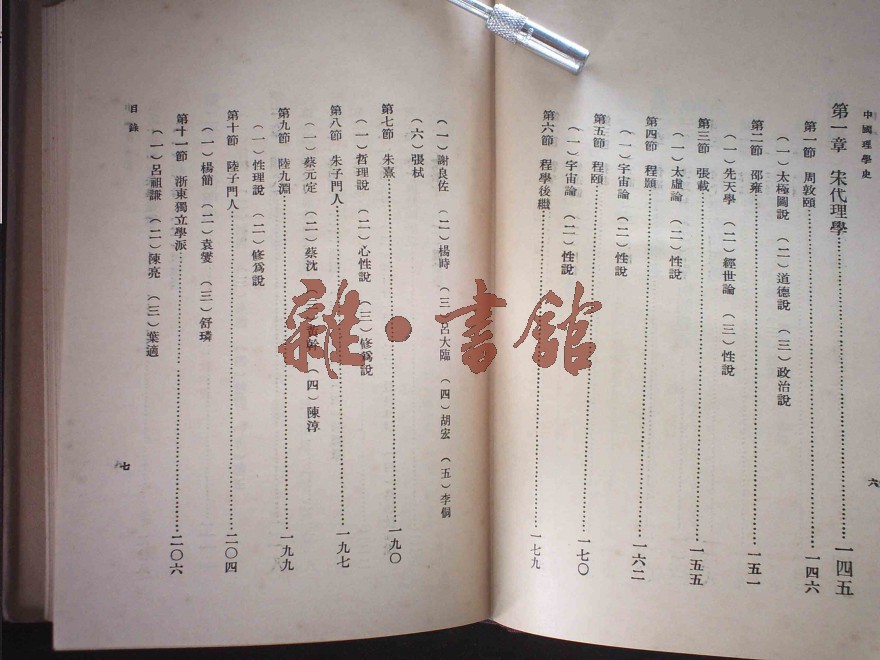 中國理學史
第一章 宋代理學……一四五
第一節 周敦頤……一四六
（一）太極圖說 （二）道德說 （三）政治說
第二節 邵雍……一五一
（一）先天學 （二）經世論 （三）性說
第三節 張載……一五五
（一）太虛論 （二）性說
第四節 程顥……一六二
（一）宇宙論 （二）性說
第五節 程頤……一七〇
（一）宇宙論 （二）性說
第六節 程學後繼……一七九
六
（一）謝良佐 （二）楊時 （三）呂大臨 （四）胡宏 （五）李侗
（六）張栻
第七節 朱熹……一九〇
（一）哲理說 （二）心性說 （三）修為說
第八節 朱子門人……一九七
（一）蔡元定 （二）蔡沈 （三）黃幹 （四）陳淳
第九節 陸九淵……一九九
（一）性理說 （二）修為說
第十節 陸子門人……二〇四
（一）楊簡 （二）袁燮 （三）舒璘
第十一節 浙東獨立學派……二〇六
（一）呂祖謙 （二）陳亮 （三）葉適
目錄
七
雜·書館